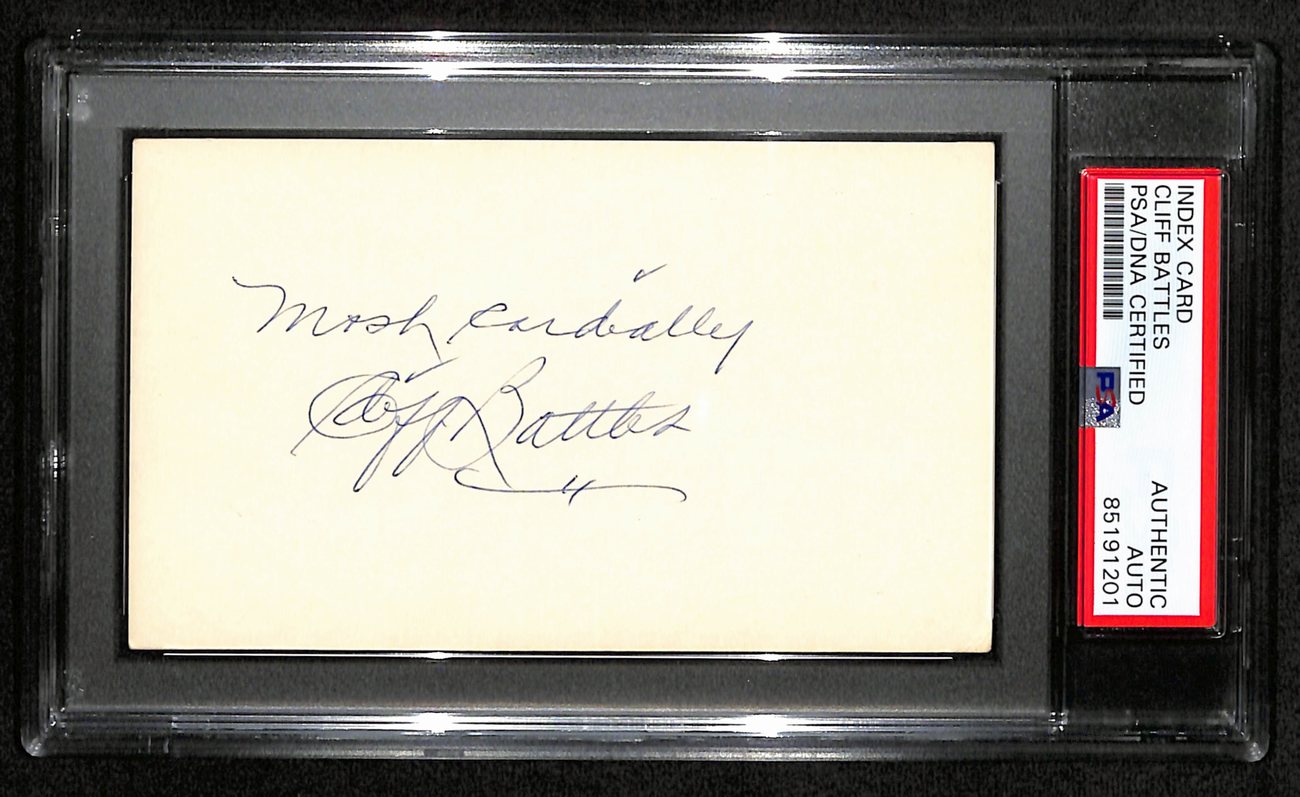 Most cordially
Cliff Battles
INDEX CARD
CLIFF BATTLES
PSA/DNA CERTIFIED
PSA
AUTHENTIC
AUTO
85191201